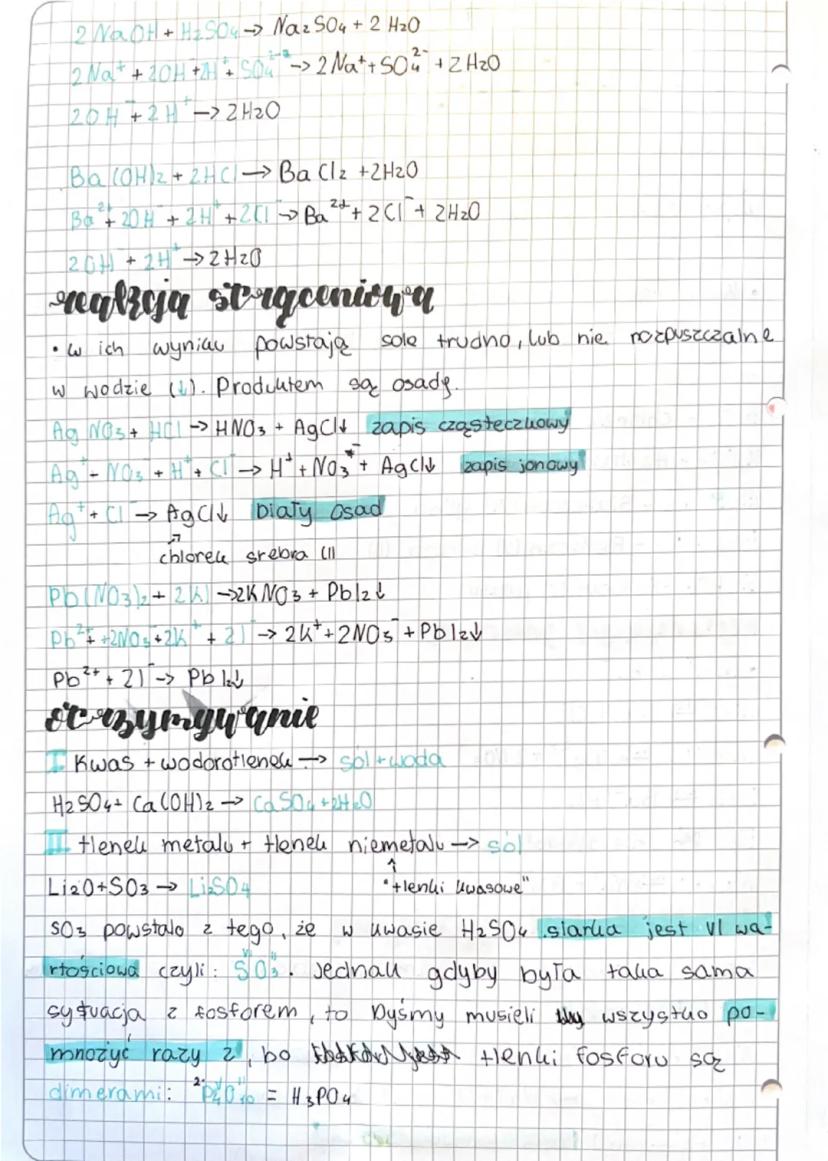 2 NaOH + H₂SO₄ → Na₂SO₄ + 2 H₂O
2 Na⁺ + 2OH⁻ + 2H⁺ + SO₄²⁻ → 2Na⁺ + SO₄²⁻ + 2H₂O
2OH⁻ + 2H⁺ → 2H₂O
Ba(OH)₂ + 2HCl → BaCl₂ + 2H₂O
Ba²⁺ + 2OH⁻ + 2H⁺ + 2Cl⁻ → Ba²⁺ + 2Cl⁻ + 2H₂O
2OH⁻ + 2H⁺ → 2H₂O
reakcja strąceniowa
• w ich wyniku powstają sole trudno, lub nie rozpuszczalne
w wodzie (↓). Produktem są osady.
AgNO₃ + HCl → HNO₃ + AgCl↓ zapis cząsteczkowy
Ag⁺ + NO₃⁻ + H⁺ + Cl⁻ → H⁺ + NO₃⁻ + AgCl↓ zapis jonowy
Ag⁺ + Cl⁻ → AgCl↓ biały osad
chlorek srebra (I)
Pb(NO₃)₂ + 2KI → 2KNO₃ + PbI₂↓
Pb²⁺ + 2NO₃⁻ + 2K⁺ + 2I⁻ → 2K⁺ + 2NO₃⁻ + PbI₂↓
Pb²⁺ + 2I⁻ → PbI₂↓
otrzymywanie
I Kwas + wodorotlenek → sól + woda
H₂SO₄ + Ca(OH)₂ → CaSO₄ + 2H₂O
II tlenek metalu + tlenek niemetalu → sól
↑
Li₂O + SO₃ → Li₂SO₄ "tlenki kwasowe"
SO₃ powstało z tego, że w kwasie H₂SO₄ siarka jest VI wa-
rtościowa czyli: SO₃. Jednak gdyby była taka sama
sytuacja z fosforem, to byśmy musieli wszystko po-
mnożyć razy 2, bo tlenki fosforu są
dimerami: P₄O₁₀ = H₃PO₄